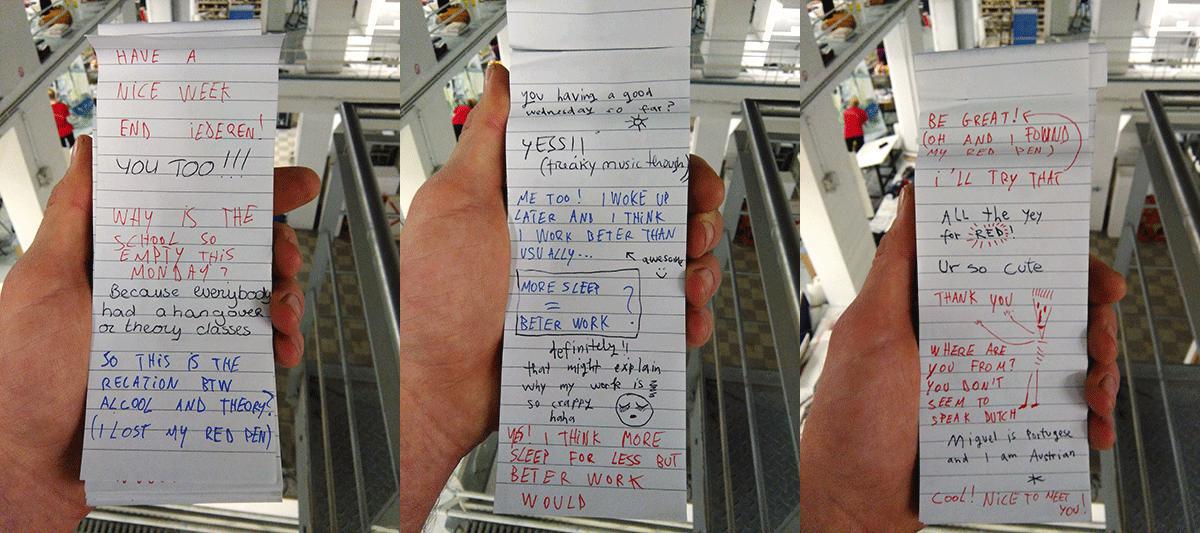 HAVE A
NICE WEEK
END IEDEREN!
YOU TOO!!!
WHY IS THE
SCHOOL SO
EMPTY THIS
MONDAY?
Because everybody
had a hangover
or theory classes
SO THIS IS THE
RELATION BTW
ALCOOL AND THEORY?
(I LOST MY RED PEN)
you having a good
wednesday so far?
YESS!!
(freaky music though)
ME TOO! I WOKE UP
LATER AND I THINK
I WORK BETER THAN
USUALLY...
awesome
MORE SLEEP
=
BETER WORK
?
definitely!!
that might explain
why my work is
so crappy
haha
YES! I THINK MORE
SLEEP FOR LESS BUT
BETER WORK
WOULD
BE GREAT!
(OH AND I FOUND
MY RED PEN)
I'LL TRY THAT
All the yey
for RED!
Ur so cute
THANK YOU
WHERE ARE
YOU FROM?
YOU DON'T
SEEM TO
SPEAK DUTCH
Miguel is Portugese
and I am Austrian
*
COOL! NICE TO MEET
YOU!